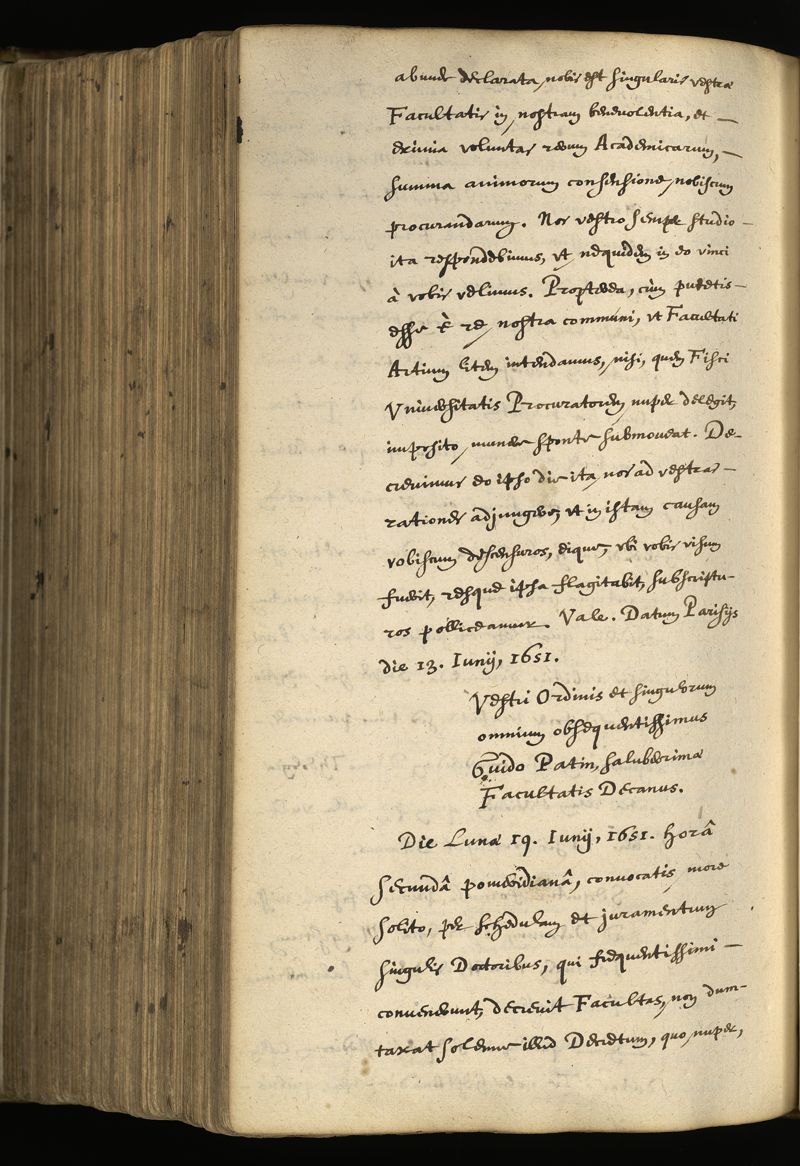 abunde declarata nobis est singularis vestræ
Facultatis in nostram benevolentia, et —
eximia voluntas rerum Academicarum, —
summa animorum consensione nobiscum
procurandarum. Nos vestro semper studio —
ita respondebimus, vt nequidem in eo vinci
à vobis velimus. Proptereà, cùm putetis —
esse è re nostra communi, vt Facultati
Artium litem intendamus, nisi, quem Fisci
Vniuersitatis Procuratorem nuper delegit,
imposito munere sponte submoueat. De-
creuimus eo ipso die ita nos ad vestras —
rationes adjungere, vt in istam causam
vobiscum descensuros, eique, vbi vobis visum
fuerit, resque ipsa flagitabit, subscriptu-
ros polliceamur. Vale. Datum Parisijs
die 13. Iunij, 1651.
Vestri Ordinis et singulorum
omnium obsequentissimus
Guido Patin, saluberrimæ
Facultatis Decanus.
Die Lunæ 19. Iunij, 1651. horâ
secundâ pomeridianâ, convocatis more
solito, per schedulam et juramentum
singulis Doctoribus, qui frequentissimi —
convenerunt, decreuit Facultas, non dum-
taxat solemne illud Decretum, quo nuper,